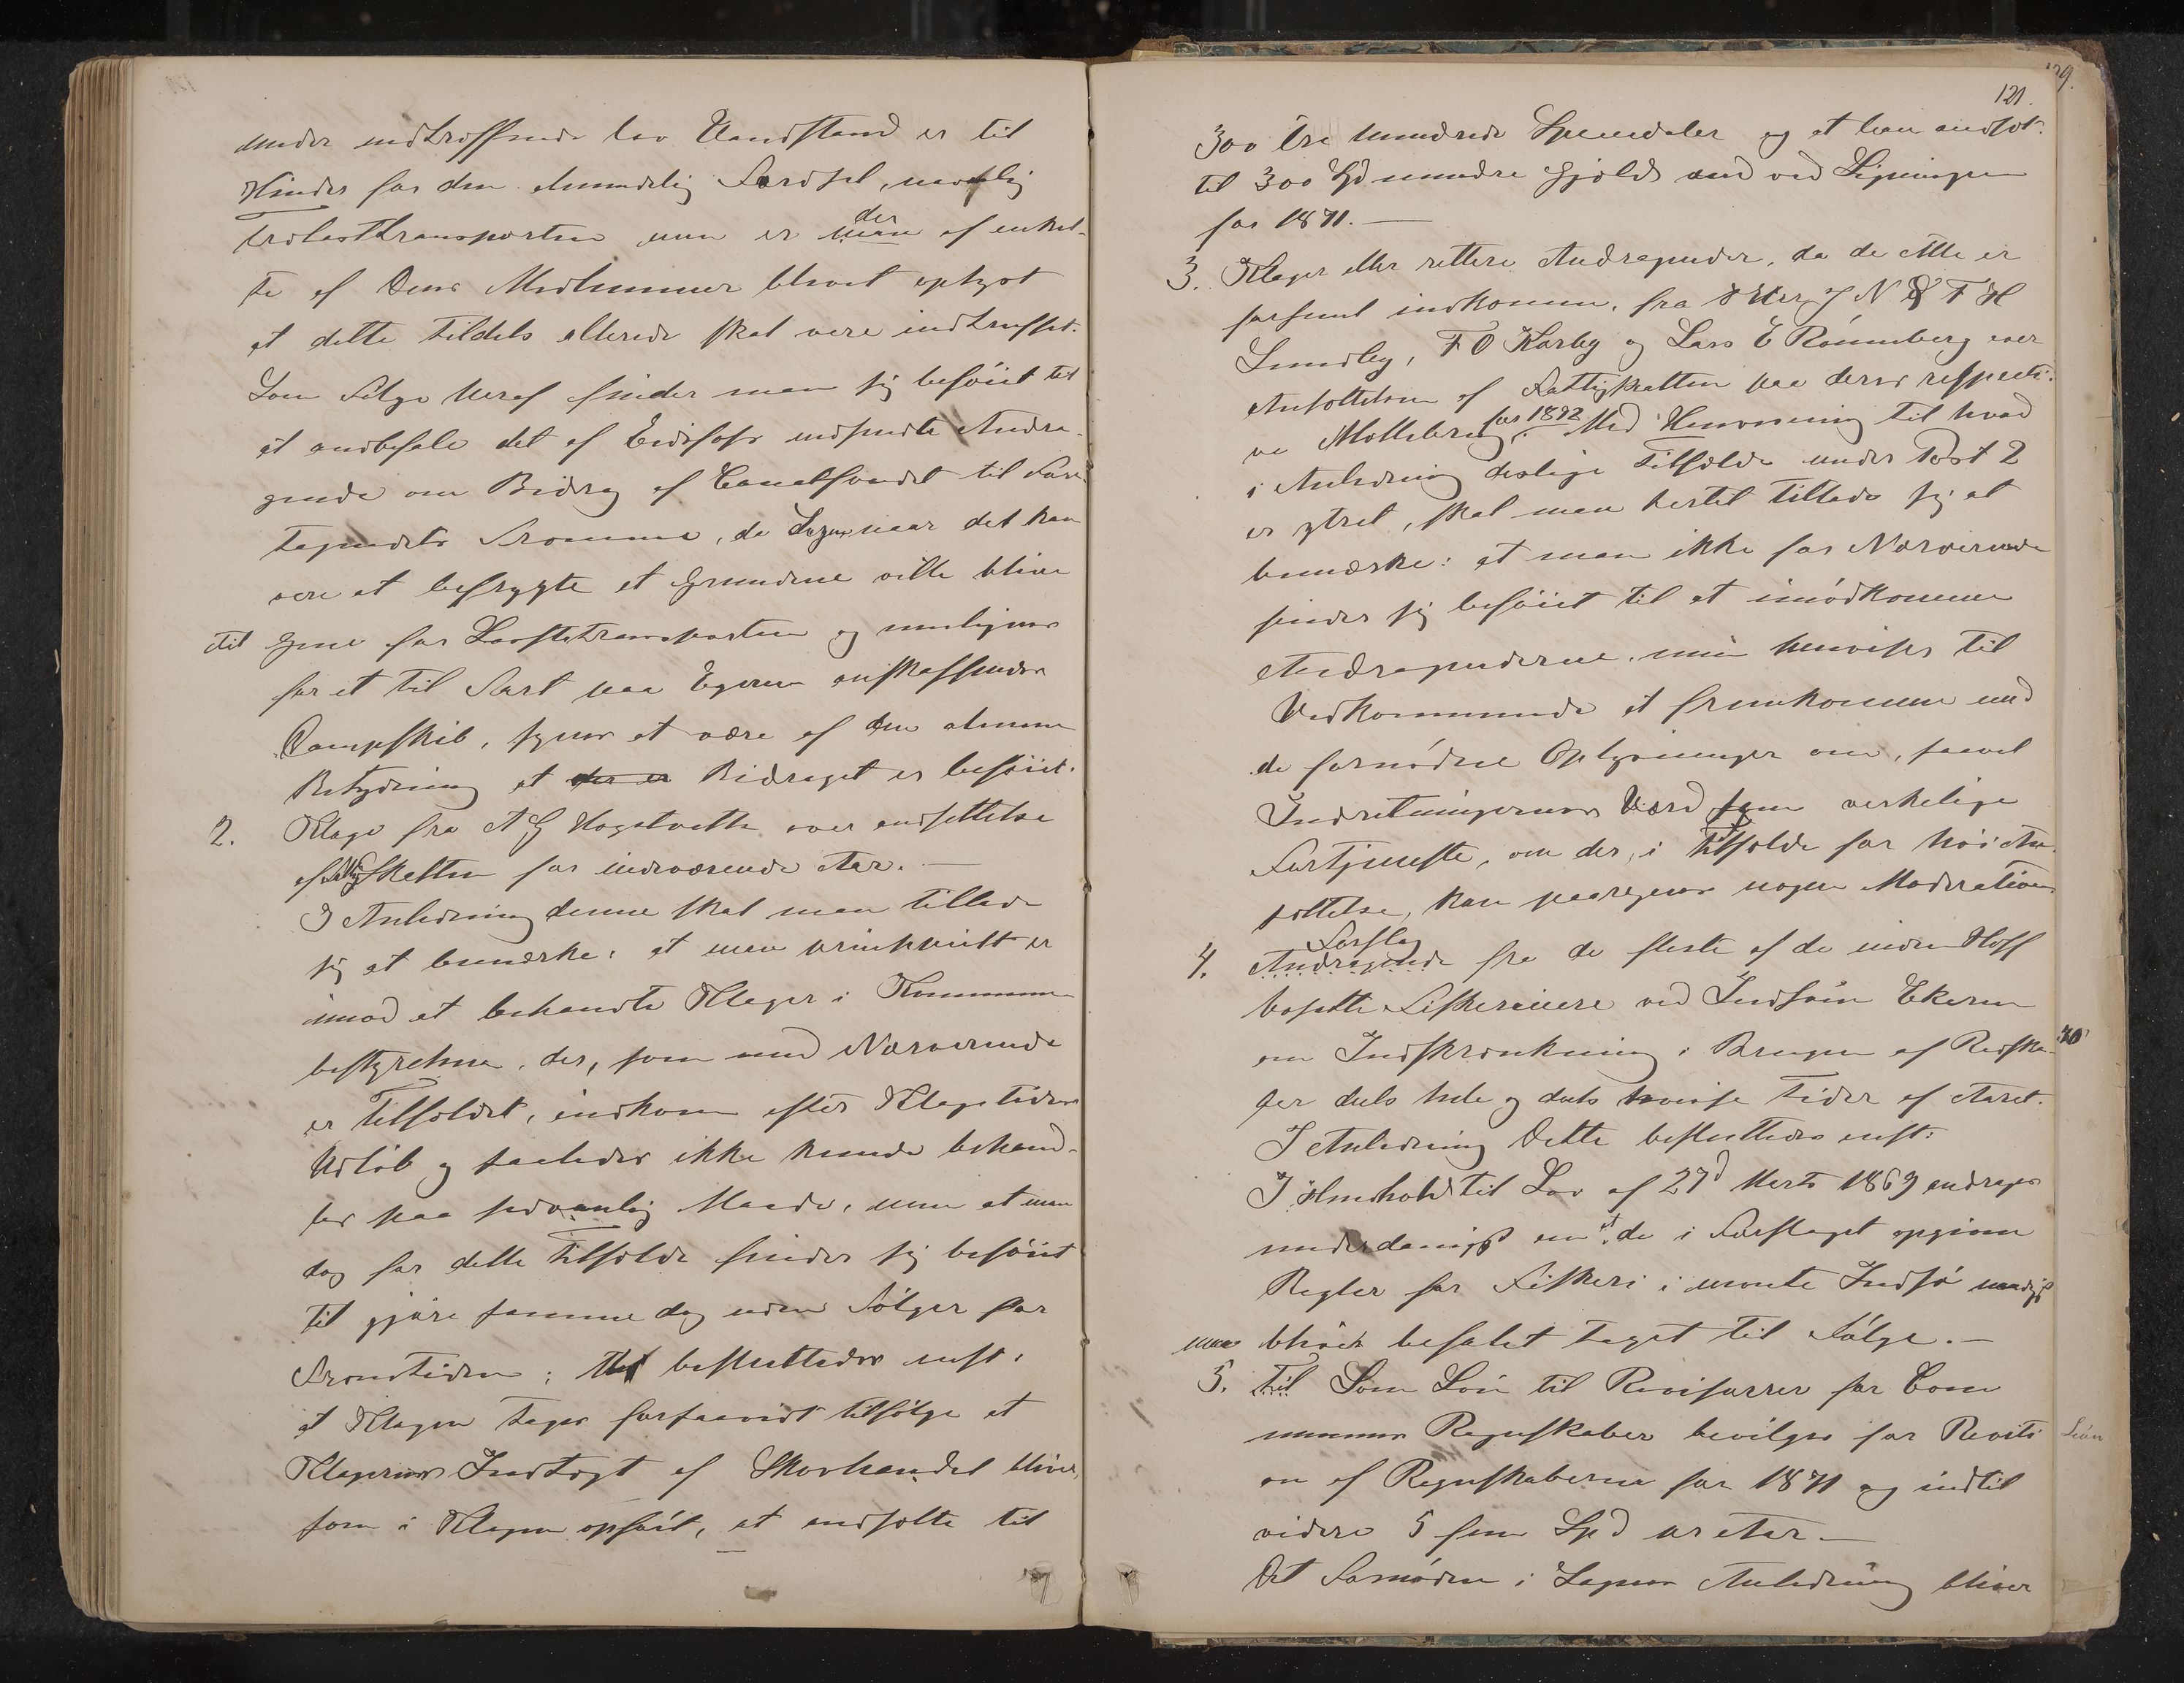 under indtræffende lav Vandstand er til
Hinder for den almindelig Færdsel, navnlig
Trælasttransporten men er der man af enkel-
te af Dens Medlemmer blevet oplyst
at dette tildels allerede skal være indtruffet.
Som Følge heraf finder man sig beføiet til
at anbefale det af Eidsfoss indsendte Andra-
gende om Bidrag af Canalfondet til Fore-
tagendets Fremme, da Sagen naar det kan
være at befrygte at Grundene ville blive
til Hinder for Lastetransporten og muligens
for et til Fart paa Egeren anskaffendes
Dampskib, synes at være af den almene
Betydning at der er Bidraget er beføiet.
2. Klage fra A G Hogstvette over ansettelse
af Fattigskatten for indeværende Aar. —
I Anledning denne skal man tillade
sig at bemærke: at man principielt er
imod at behandle Klager i Kommune-
bestyrelsen, der, som med Nærværende
er Tilfældet, indkom efter Klagetidens
Udløb og saaledes ikke kunde behand-
les paa sedvanlig Maade, men at man
dog for dette Tilfælde finder sig beføiet
til gjøre samme dog uden Følger for
Fremtiden; Thi besluttedes enst.
at Klagen tages forsaavidt tilfølge at
Klagerens Indtægt af Skovhandel bliver,
som i Klagen opført, at ansætte til
121.
300 tre hundrede Speciedaler og at han ansæt.
til 300 Spd mindre Gjæld end ved Ligningen
for 1871. —
3. Klager eller rettere Andragender, da de Alle er
forsent indkomne, fra J N & T H
Lundby, F O Korby og Lars E Rønneberg over
Ansættelsen af Fattigskatten paa deres respecti-
ve Møllebrug for 1872. Med Henvisning til hvad
i Anledning deslige Tilfælde under Post 2
er ytret, skal man hertil tillade sig at
bemærke: at man ikke for Nærværende
finder sig beføiet til at imødkomme
Andragenderne, men henvises til
Vedkommende at fremkomme med
de fornødne Oplysninger om, saavel
Indretningernes Værd som virkelige
Fortjeneste, om der, i Tilfælde for høi An-
sættelse, kan paaregnes nogen Moderation
4. Forslag Andragende fra de fleste af de inden Hoff
bosatte Fiskerieiere ved Indsøen Ekern
om Indskrænkning i Brugen af Redska-
ber dels hele og dels hvisse Tider af Aaret.
I Anledning Dette besluttedes enst:
I Henhold til Lov af 27d Marts 1869 andrages
underdanigst om at de i Forslaget opgivne
Regler for Fiskeri i nævnte Indsø naadigst
maa blive befalet taget til Følge. —
5. Til Som Løn til Revisorer for Com-
munens Regnskaber bevilges for Revisi-
on af Regnskaberne for 1871 og indtil
videre 5 fem Spd pr Aar. —
Det Fornødne i Sagens Anledning bliver